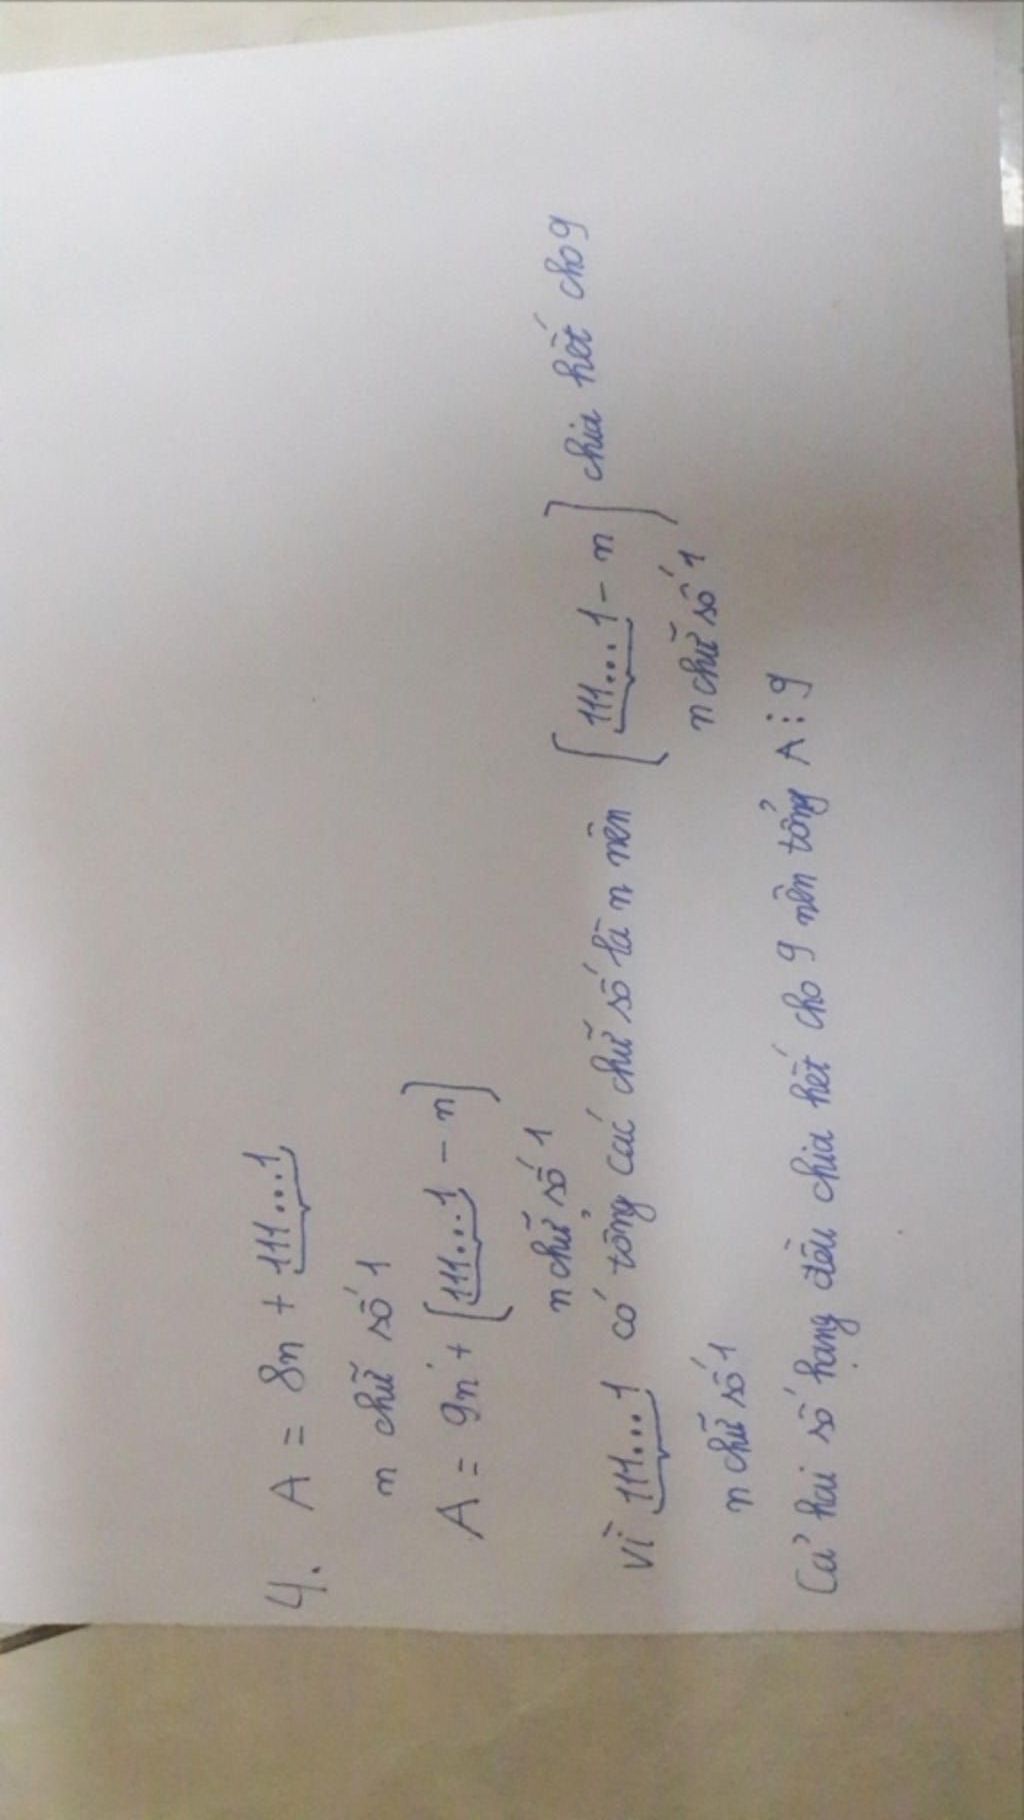 4. A = 8n + 111...1
n chữ số 1
A = 9n + [111...1 - n]
n chữ số 1
Vì 111...1 có tổng các chữ số là n nên [111...1 - n] chia hết cho 9
n chữ số 1 n chữ số 1
Cả hai số hạng đều chia hết cho 9 nên tổng A ⋮ 9